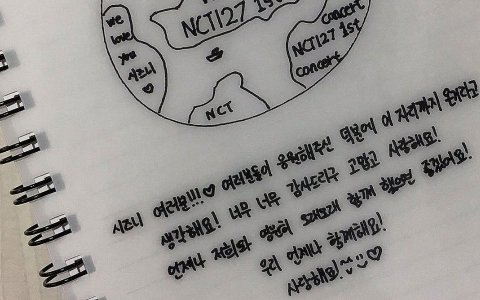 we
love
you
시즈니
♡
NCT127 1st
concert
NCT127 1st
concert
NCT
시즈니 여러분!!!♡ 여러분들이 응원해주신 덕분에 이 자리까지 온거라고
생각해요! 너무 너무 감사드리구 고맙고 사랑해요!
언제나 저희와 영원히 오래오래 함께 했으면 좋겠어요!
우리 언제나 함께해요!
사랑해요!~~♡